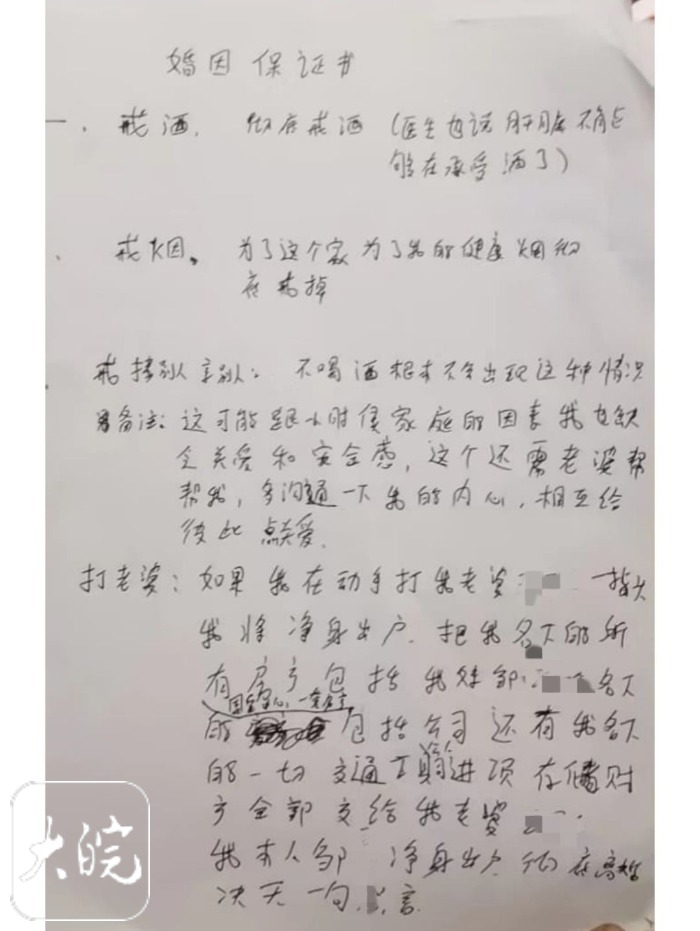 婚因保证书
一、戒酒. 彻底戒酒 (医生也说肝脏不能
够在承受酒了)
、戒烟。为了这个家为了我的健康烟彻
底戒掉
戒 不喝酒根本不会出现这种情况
备注：这可能跟小时侯家庭的因素我也缺
乏关爱和安全感，这个还需老婆帮
帮我，多沟通一下我的内心，相互给
彼此点关爱.
打老婆：如果我在动手打我老婆 一指头
我将净身出户. 把我名下的所
有房产包括我 名下
的 包括公司还有我名下
的一切交通工具 进项存储财
产全部交给我老婆
我本人邹 净身出户彻底离婚
决无一句 言.
大皖